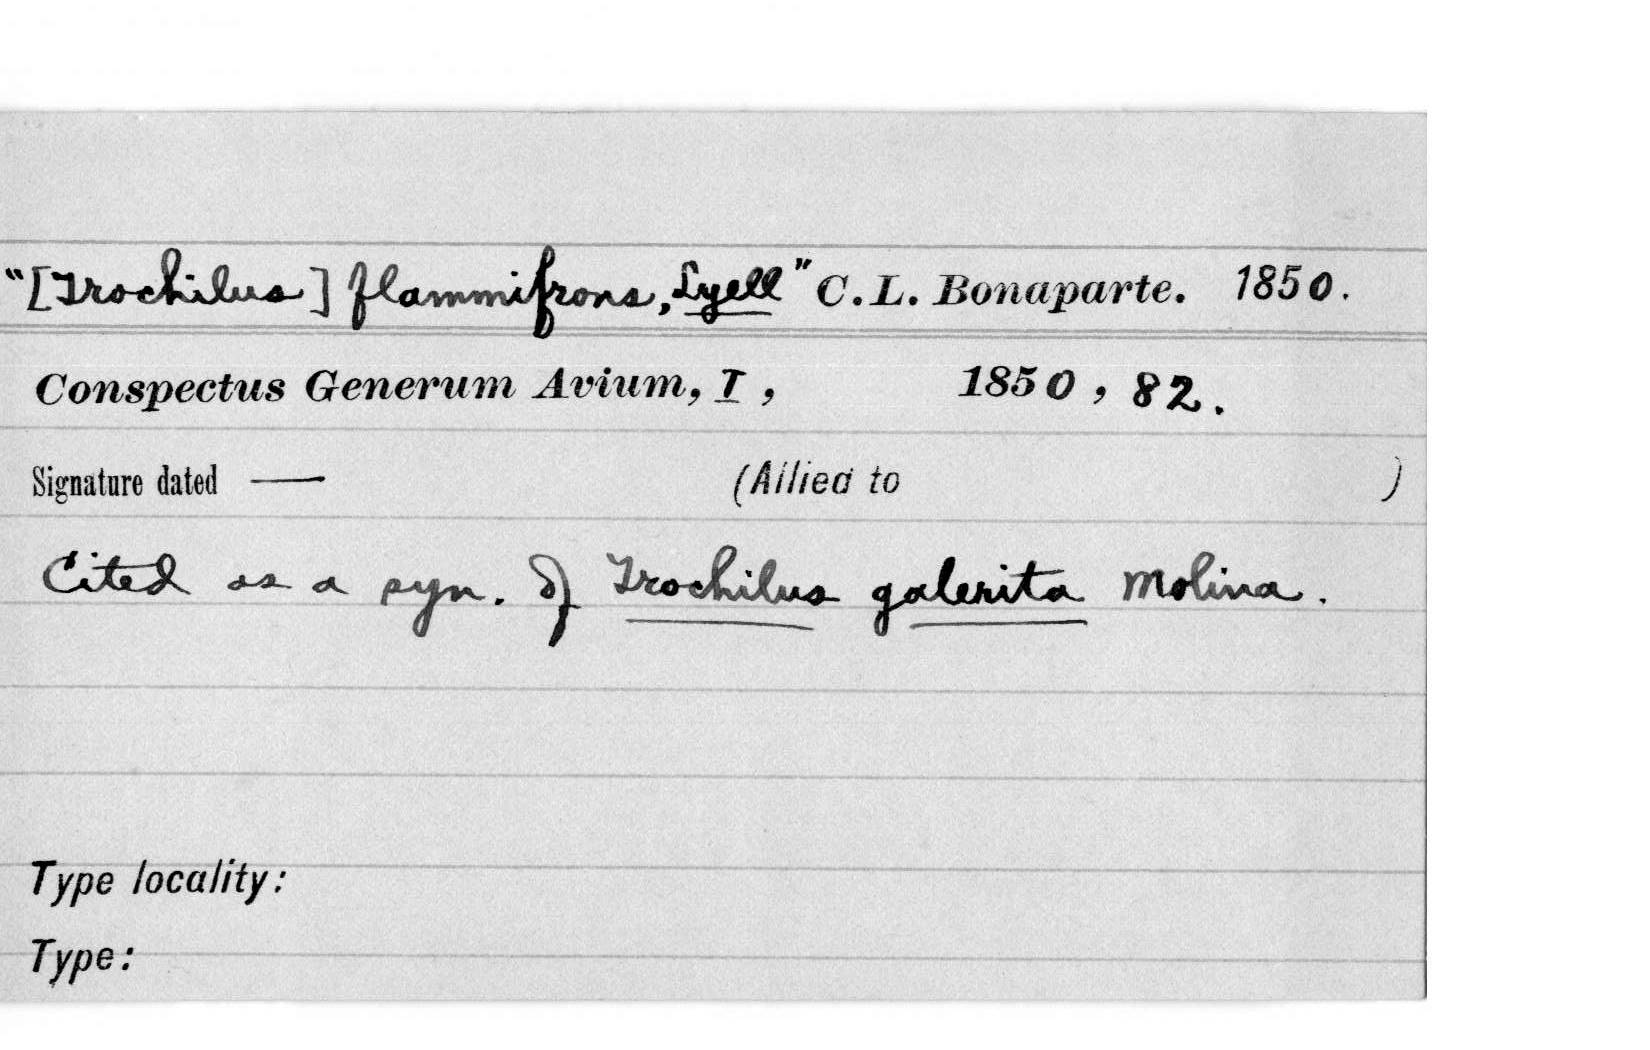 "[Trochilus] flammifrons, Lyell" C.L. Bonaparte. 1850.
Conspectus Generum Avium, I, 1850, 82.
Signature dated — (Allied to )
Cited as a syn. of Trochilus galerita Molina.
Type locality:
Type: